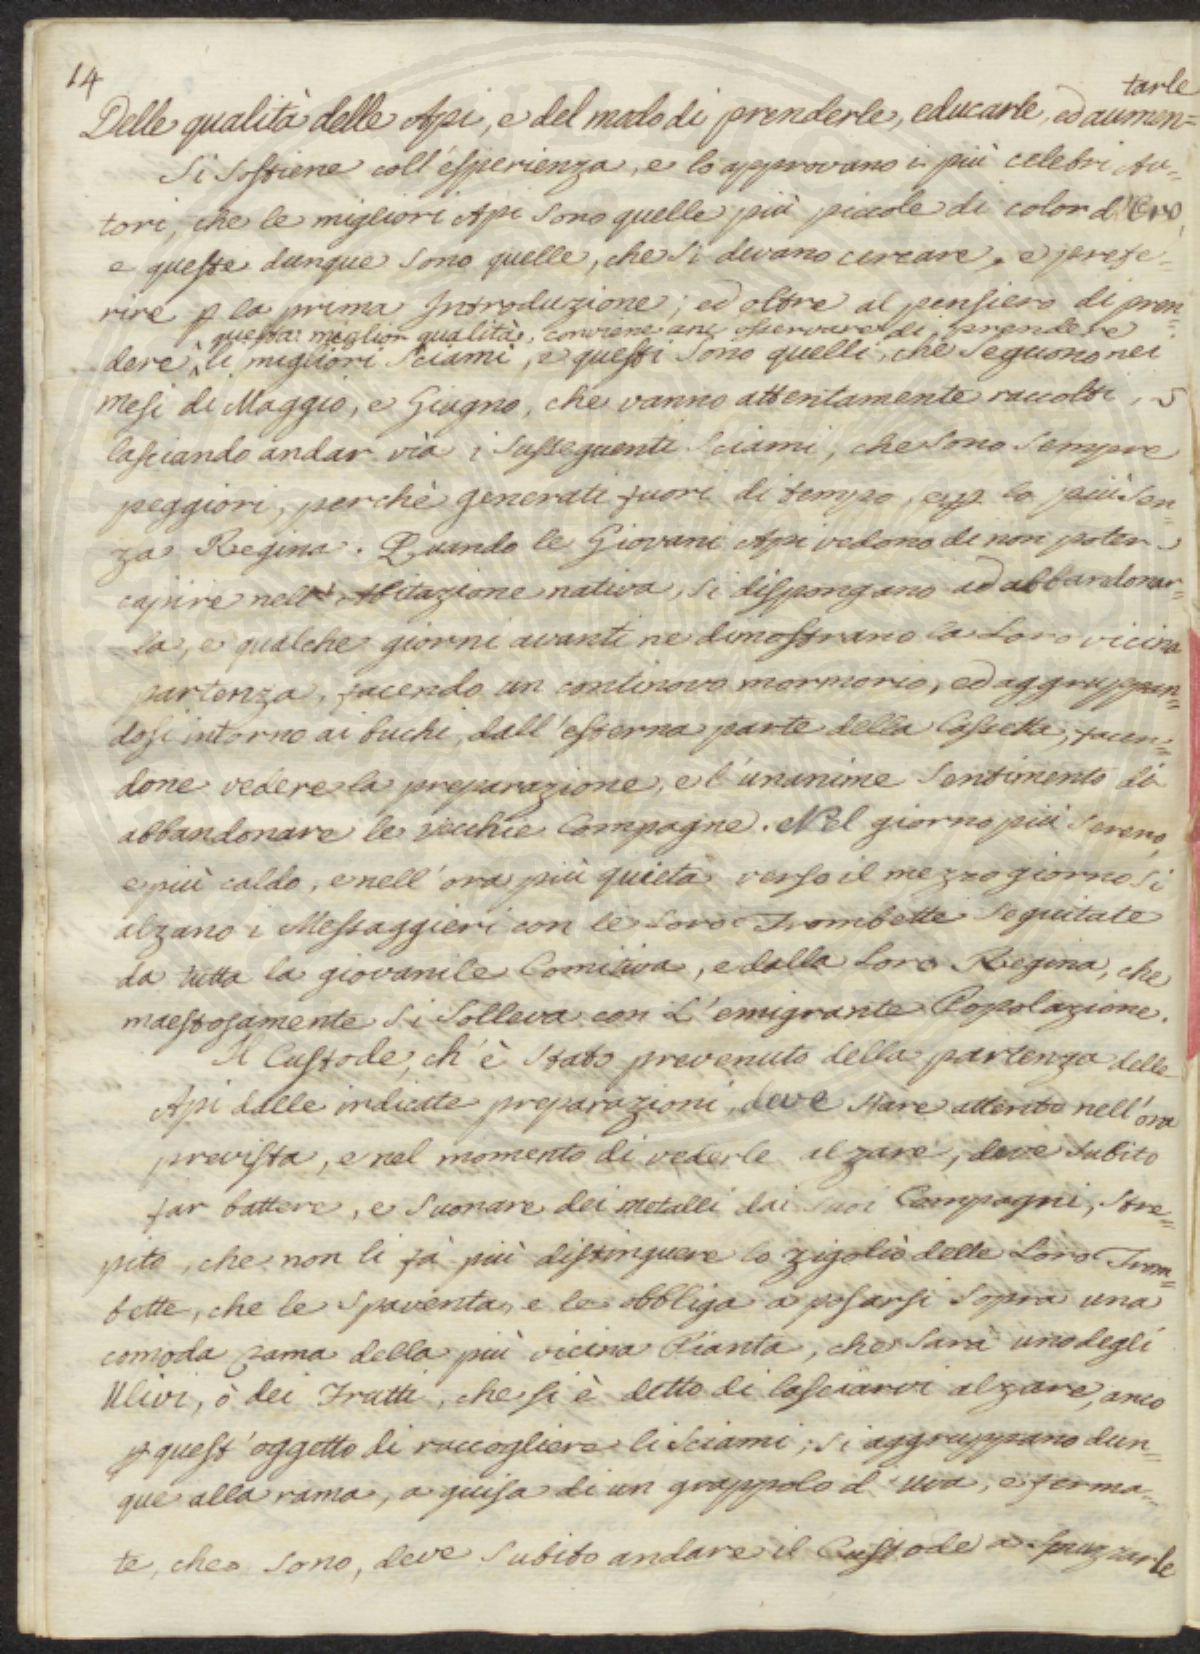 14
Delle qualità delle Api, e del modo di prenderle, educarle, ed aumen=
tarle
Si sostiene coll'esperienza, e lo approvano i più celebri Au=
tori, che le migliori Api sono quelle più piccole di color d'Oro,
e queste dunque sono quelle, che si devano cercare, e prefe=
rire p la prima Introduzione; ed oltre al pensiero di pren=
questa miglior qualità, conviene anc osservare di prendere
dere, li migliori Sciami, e questi sono quelli, che seguono nei
mesi di Maggio, e Giugno, che vanno attentamente raccolti,
lasciando andar via i susseguenti Sciami, che sono sempre
peggiori, perchè generati fuori di tempo, e p lo più sen=
za Regina. Quando le Giovani Api vedono di non poter
capire nell'Abitazione nativa, si dispongano ad abbandonar=
la, e qualche giorni avanti ne dimostrano la Loro vicina
partenza, facendo un continovo mormorio, ed aggruppan=
dosi intorno ai buchi, dall'esterna parte della Cassetta, facen=
done vedere la preparazione, e l'unanime sentimento di
abbandonare le vecchie Compagne. Nel giorno più sereno,
e più caldo, e nell'ora più quieta verso il mezzo giorno si
alzano i Messaggieri con le Loro Trombette seguitate
da tutta la giovanile Comitiva, e dalla Loro Regina, che
maestosamente si solleva con L'emigrante Popolazione.
Il Custode, ch'è stato prevenuto della partenza delle
Api dalle indicate preparazioni, deve stare attento nell'ora
prevista, e nel momento di vederle alzare, deve subito
far battere, e suonare dei metalli dai suoi Compagni, stre=
pito, che non li fà più distinguere lo zigolìo delle Loro Trom=
bette, che le spaventa, e le obbliga a posarsi sopra una
comoda rama della più vicina Pianta, che sarà uno degli
Ulivi, ò dei Frutti, che si è detto di lasciarvi alzare, anco
p quest'oggetto di raccogliere li Sciami; si aggruppano dun=
que alla rama, a guisa di un grappolo d'uva, e ferma=
te, che sono, deve subito andare il Custode a spruzzarle